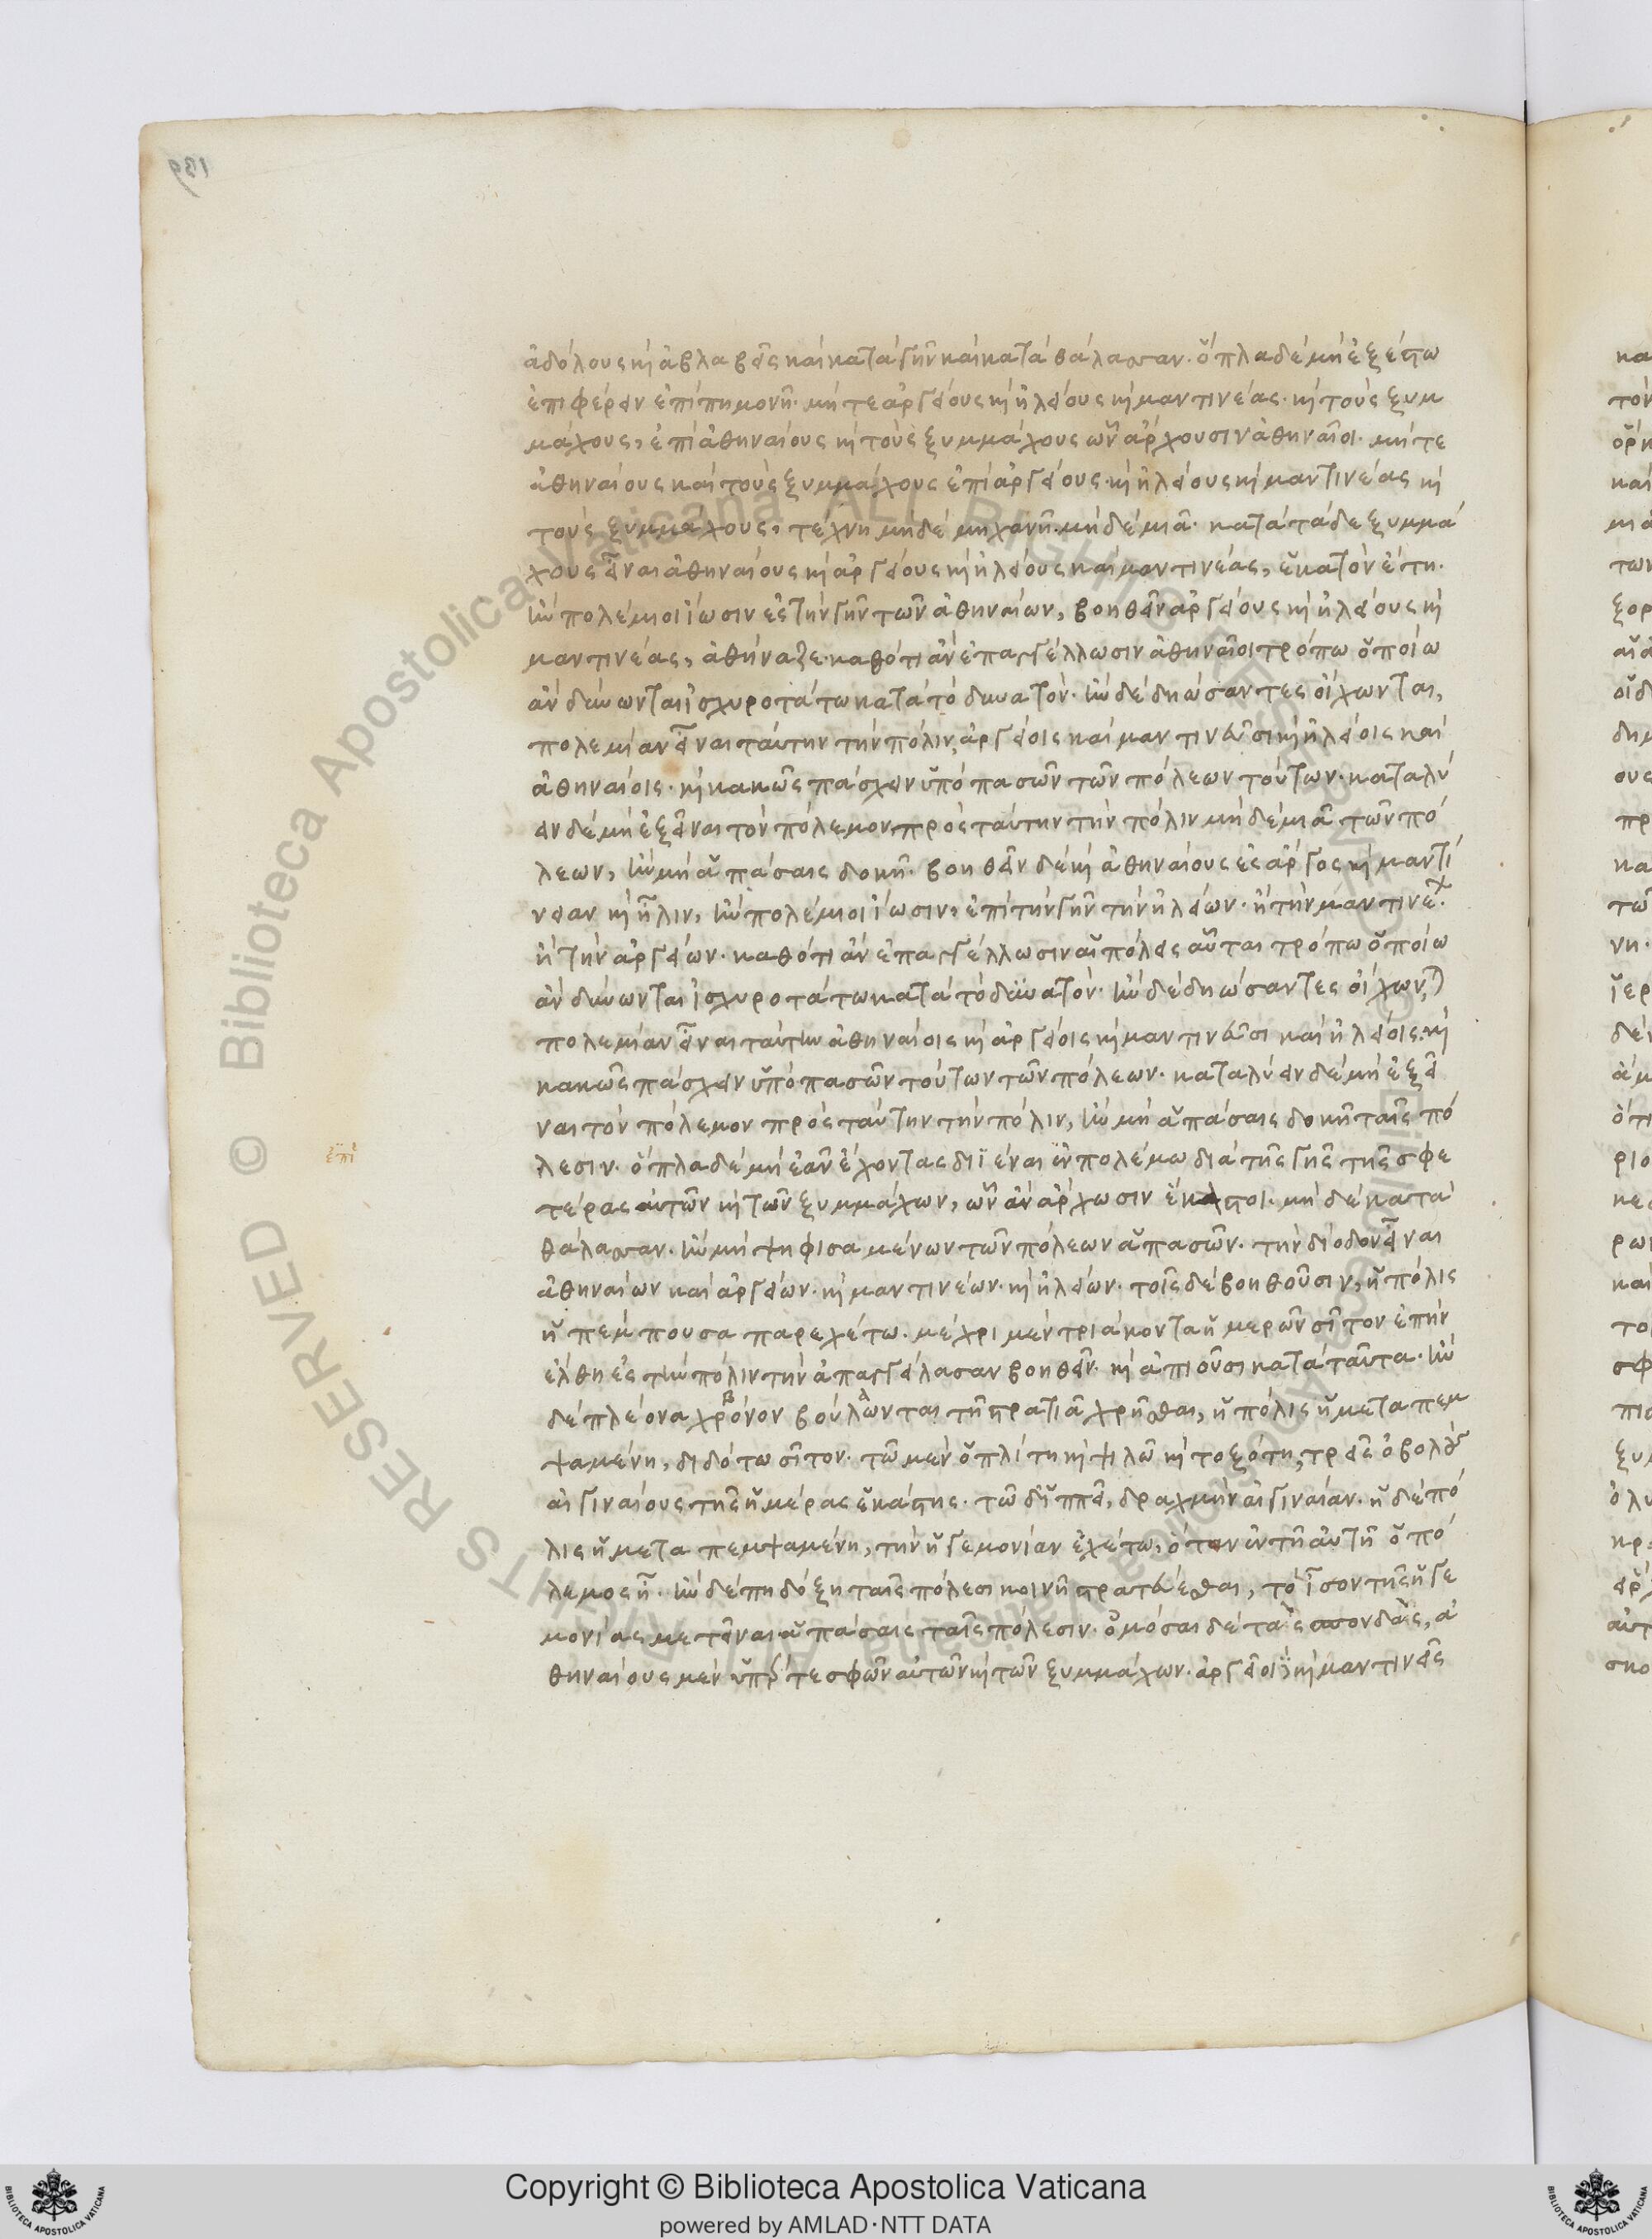 139
ἀδόλους καὶ ἀβλαβεῖς καὶ κατὰ γῆν καὶ κατὰ θάλασσαν· ὅπλα δὲ μὴ ἐξέστω
ἐπιφέρειν ἐπὶ πημονῆ· μήτε ἀργείους καὶ ἠλείους καὶ μαντινέας· καὶ τοὺς ξυμ
μάχους, ἐπὶ ἀθηναίους καὶ τοὺς ξυμμάχους ὧν ἄρχουσιν ἀθηναῖοι· μήτε
ἀθηναίους καὶ τοὺς ξυμμάχους ἐπὶ ἀργείους· καὶ ἠλείους καὶ μαντινέας καὶ
τοὺς ξυμμάχους, τέχνη μὴδὲ μηχανῆ· μὴδὲ μιᾶ· κατὰ τάδε ξυμμά
χους εἶναι ἀθηναίους καὶ ἀργείους καὶ ἠλείους καὶ μαντινέας, ἑκατὸν ἔτη·
ἢν πολέμιοι ἴωσιν ἐς τὴν γῆν τῶν ἀθηναίων, βοηθεῖν ἀργείους καὶ ἠλείους καὶ
μαντινέας, ἀθήναζε· καθότι ἂν ἐπαγγέλλωσιν ἀθηναῖοι τρόπω ὁποίω
ἂν δύνωνται ἰσχυροτάτω κατὰ τὸ δυνατόν· ἢν δὲ δηώσαντες οἴχωνται,
πολεμίαν εἶναι ταύτην τὴν πόλιν, ἀργείοις καὶ μαντινεῦσι καὶ ἠλείοις καὶ
ἀθηναίοις· καὶ κακῶς πάσχειν ὑπὸ πασῶν τῶν πόλεων τούτων· καταλύ
ειν δὲ μὴ ἐξεῖναι τὸν πόλεμον πρὸς ταύτην τὴν πόλιν μὴδὲ μιᾶ τῶν πό
λεων, ἢν μὴ ἁπάσαις δοκῆ· βοηθεῖν δὲ καὶ ἀθηναίους ἐς ἄργος καὶ μαντί
νειαν καὶ ἦλιν, ἢν πολέμιοι ἴωσιν, ἐπὶ τὴν γῆν τὴν ἠλείων· ἢ τὴν μαντινέων·
ἢ τὴν ἀργείων· καθότι ἂν ἐπαγγέλλωσιν αἱ πόλεις αὗται τρόπω ὁποίω
ἂν δύνωνται ἰσχυροτάτω κατὰ τὸ δυνατόν· ἢν δὲ δηώσαντες οἴχωνται
πολεμίαν εἶναι ταύτην ἀθηναίοις καὶ ἀργείοις καὶ μαντινεῦσι καὶ ἠλείοις· καὶ
κακῶς πάσχειν ὑπὸ πασῶν τούτων τῶν πόλεων· καταλύειν δὲ μὴ ἐξεῖ
ναι τὸν πόλεμον πρὸς ταύτην τὴν πόλιν, ἢν μὴ ἁπάσαις δοκῆ ταῖς πό
ἐπὶ
λεσιν· ὅπλα δὲ μὴ ἐᾶν ἔχοντας διϊέναι ἐν πολέμω διὰ τῆς γῆς τῆς σφε
τέρας αὐτῶν καὶ τῶν ξυμμάχων, ὧν ἂν ἄρχωσιν ἕκαστοι· μὴδὲ κατὰ
θάλασσαν· ἢν μὴ ψηφισαμένων τῶν πόλεων ἁπασῶν· τὴν δίοδον εἶναι
ἀθηναίων καὶ ἀργείων· καὶ μαντινέων· καὶ ἠλείων· τοῖς δὲ βοηθοῦσιν, ἡ πόλις
ἡ πέμπουσα παρεχέτω· μέχρι μὲν τριάκοντα ἡμερῶν σῖτον ἐπὴν
ἔλθη ἐς τὴν πόλιν τὴν ἀπαγγείλασαν βοηθεῖν· καὶ ἀπιοῦσι κατὰ ταῦτα· ἢν
δὲ πλέονα χρόνον βούλωνται τῆ στρατιᾶ χρῆσθαι, ἡ πόλις ἡ μεταπεμ
ψαμένη, διδότω σῖτον· τῶ μὲν ὁπλίτη καὶ ψιλῶ καὶ τοξότη, τρεῖς ὀβολοὺς
αἰγιναίους τῆς ἡμέρας ἑκάστης· τῶ δ' ἱππεῖ, δραχμὴν αἰγιναίαν· ἡ δὲ πό
λις ἡ μεταπεμψαμένη, τὴν ἡγεμονίαν ἐχέτω, ὅταν ἐν τῆ αὐτῆ ὁ πό
λεμος ἦ· ἢν δέ πη δόξη ταῖς πόλεσι κοινῆ στρατεύεσθαι, τὸ ἴσον τῆς ἡγε
μονίας μετεῖναι ἁπάσαις ταῖς πόλεσιν· ὀμόσαι δὲ τὰς σπονδὰς, ἀ
θηναίους μὲν ὑπέρ τε σφῶν αὐτῶν καὶ τῶν ξυμμάχων· ἀργεῖοι καὶ μαντινεῖς